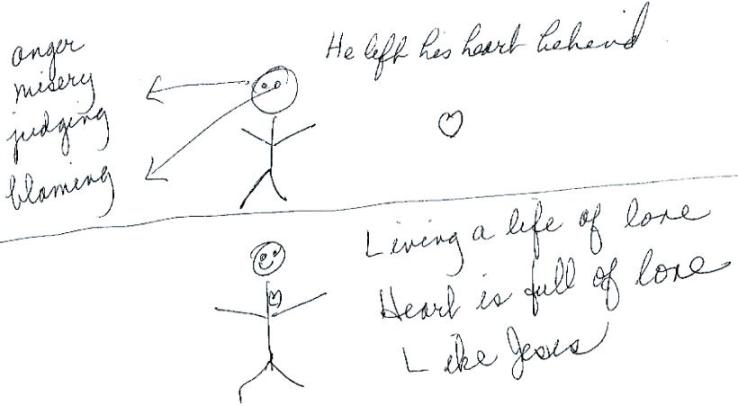 anger
misery
judging
blaming
He left his heart behind
Living a life of love
Heart is full of love
Like Jesus